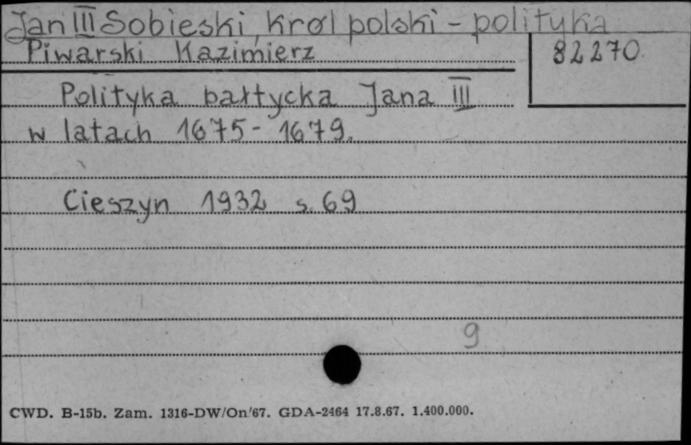 Jan III Sobieski, król polski - polityka
Piwarski Kazimierz
82270
Polityka bałtycka Jana III
w latach 1675-1679.
Cieszyn 1932 s. 69
9
CWD. B-15b. Zam. 1316-DW/On/67. GDA-2464 17.8.67. 1.400.000.